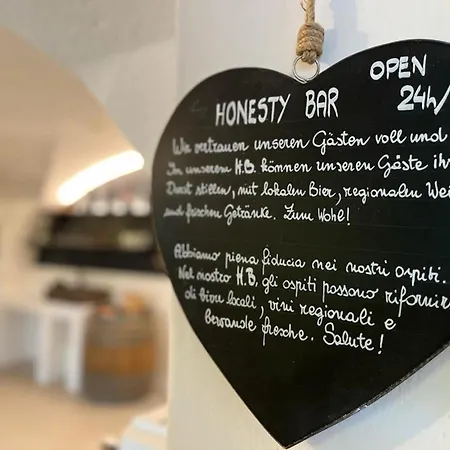 OPEN
HONESTY BAR 24h/
Wir vertrauen unseren Gästen voll und
In unserem H.B. können unseren Gäste ih
Durst stillen, mit lokalen Bier, regionalen Wei
und frischen Getränke. Zum Wohl!
Abbiamo piena fiducia nei nostri ospiti.
Nel nostro H.B. gli ospiti possono rifornir
di birre locali, vini regionali e
bevande fresche. Salute!